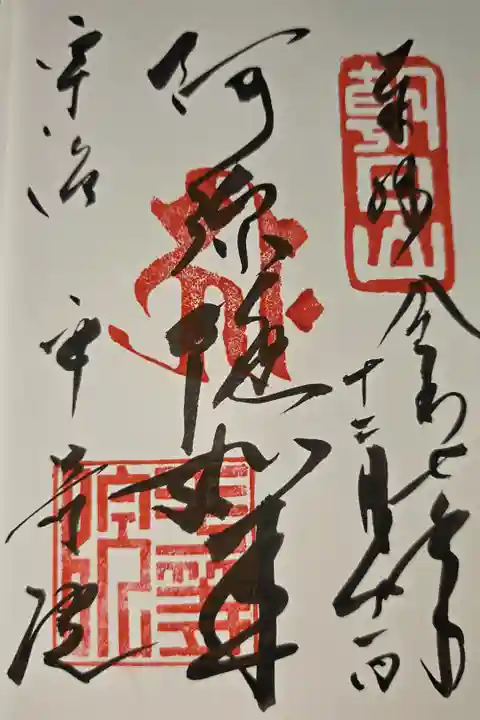 奉拝
朝日山
令和七年
十二月廿一日
阿弥陀如来
宇治 平等院